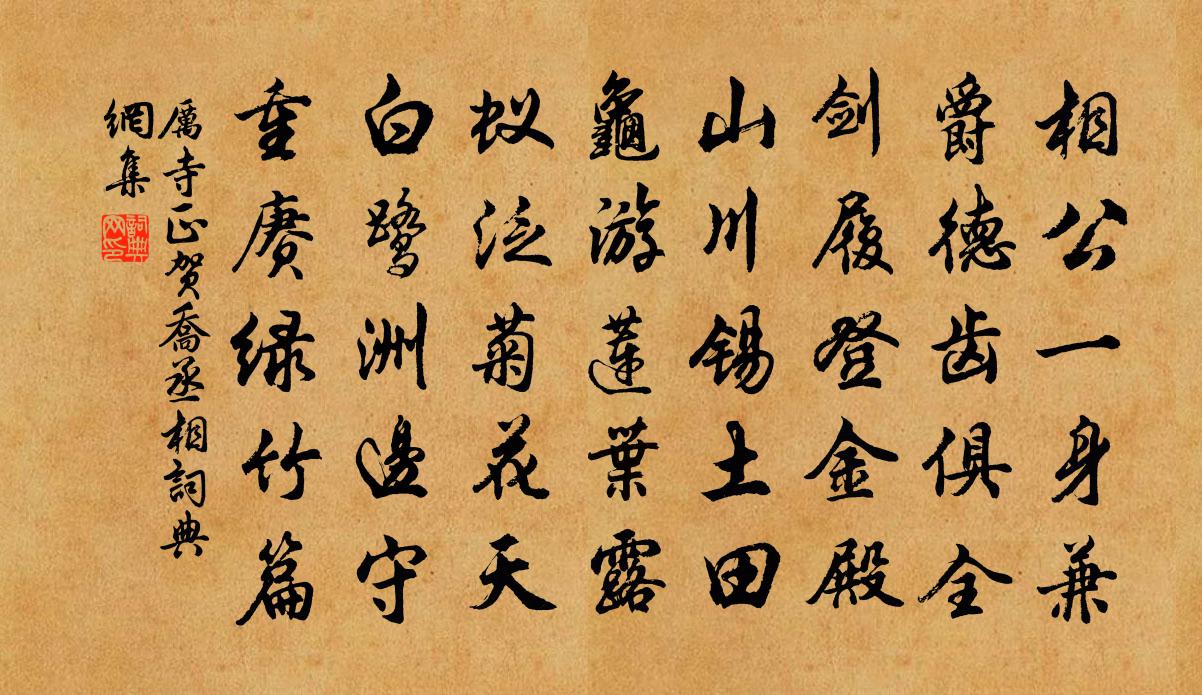 相公一身兼
爵德齿俱全
剑履登金殿
山川锡土田
龜游莲葉露
蚁泛菊花天
白鹭洲邊守
重赓绿竹篇
厲寺正贺喬丞相詞典
網集
詞典
网印